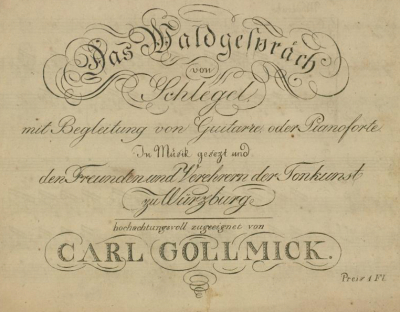 Das Waldgespräch
von
Schlegel,
mit Begleitung von Guitarre oder Pianoforte
In Musik gesezt und
den Freunden und Verehrern der Tonkunst
zu Würzburg
hochachtungsvoll zugeeignet von
CARL GOLLMICK.
Preis 1 Fl.